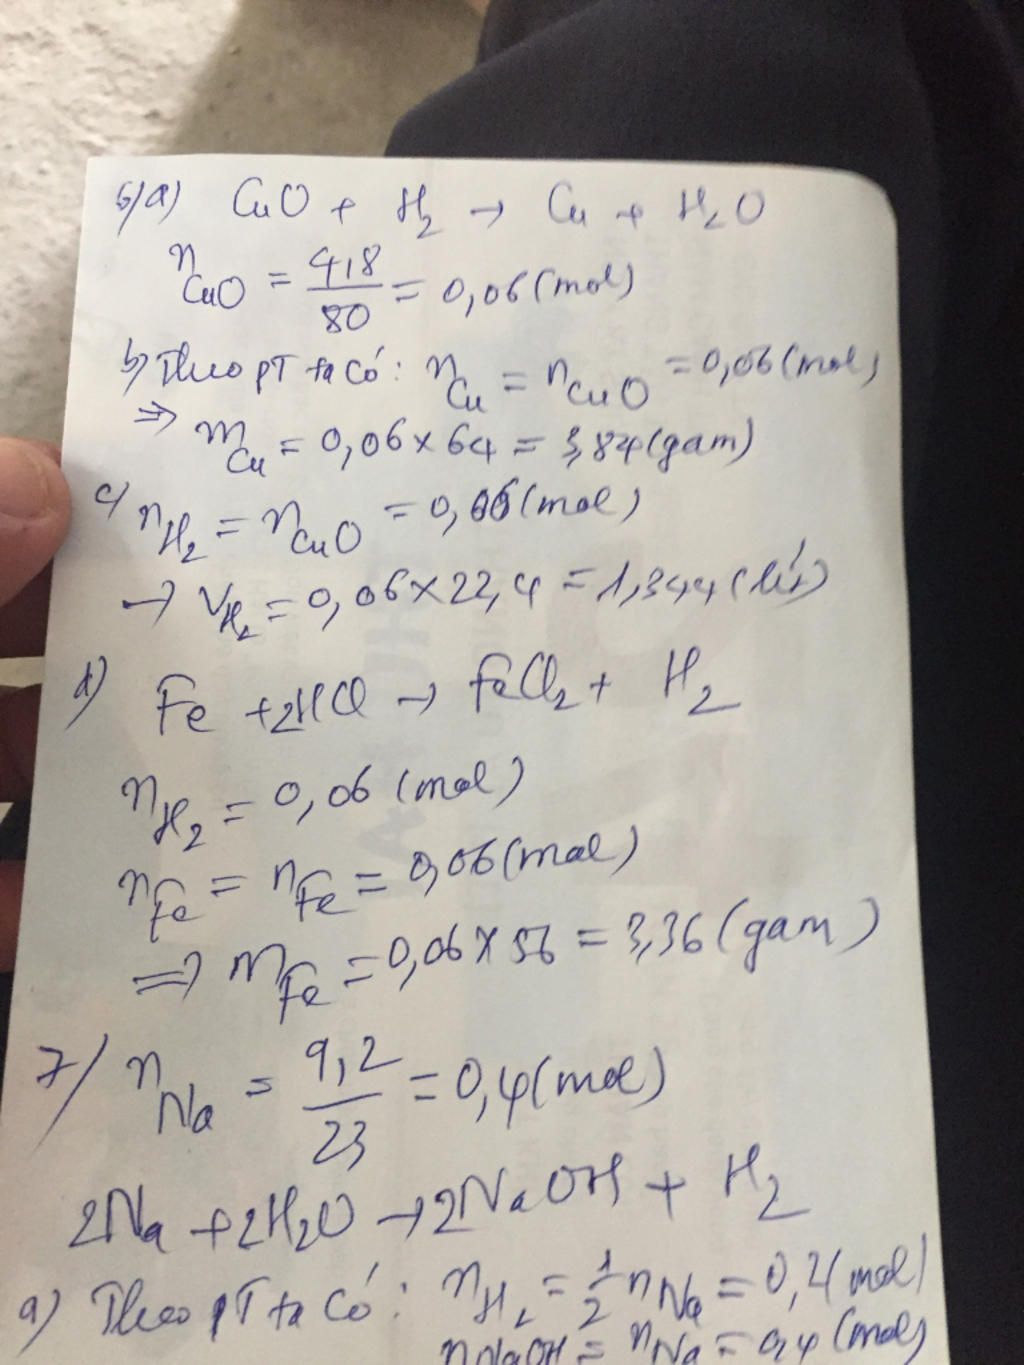 6/a) CuO + H₂ → Cu + H₂O
n_CuO = 4,8/80 = 0,06 (mol)
b) Theo pT ta có: n_Cu = n_CuO = 0,06 (mol)
⇒ m_Cu = 0,06 × 64 = 3,84 (gam)
c/ n_H₂ = n_CuO = 0,06 (mol)
→ V_H₂ = 0,06 × 22,4 = 1,344 (lít)
d) Fe + 2HCl → FeCl₂ + H₂
n_H₂ = 0,06 (mol)
n_Fe = n_Fe = 0,06 (mol)
⇒ m_Fe = 0,06 × 56 = 3,36 (gam)
7/ n_Na = 9,2/23 = 0,4 (mol)
2Na + 2H₂O → 2NaOH + H₂
a) Theo pT ta có: n_H₂ = 1/2 n_Na = 0,2 (mol)
n_NaOH = n_Na = 0,4 (mol)